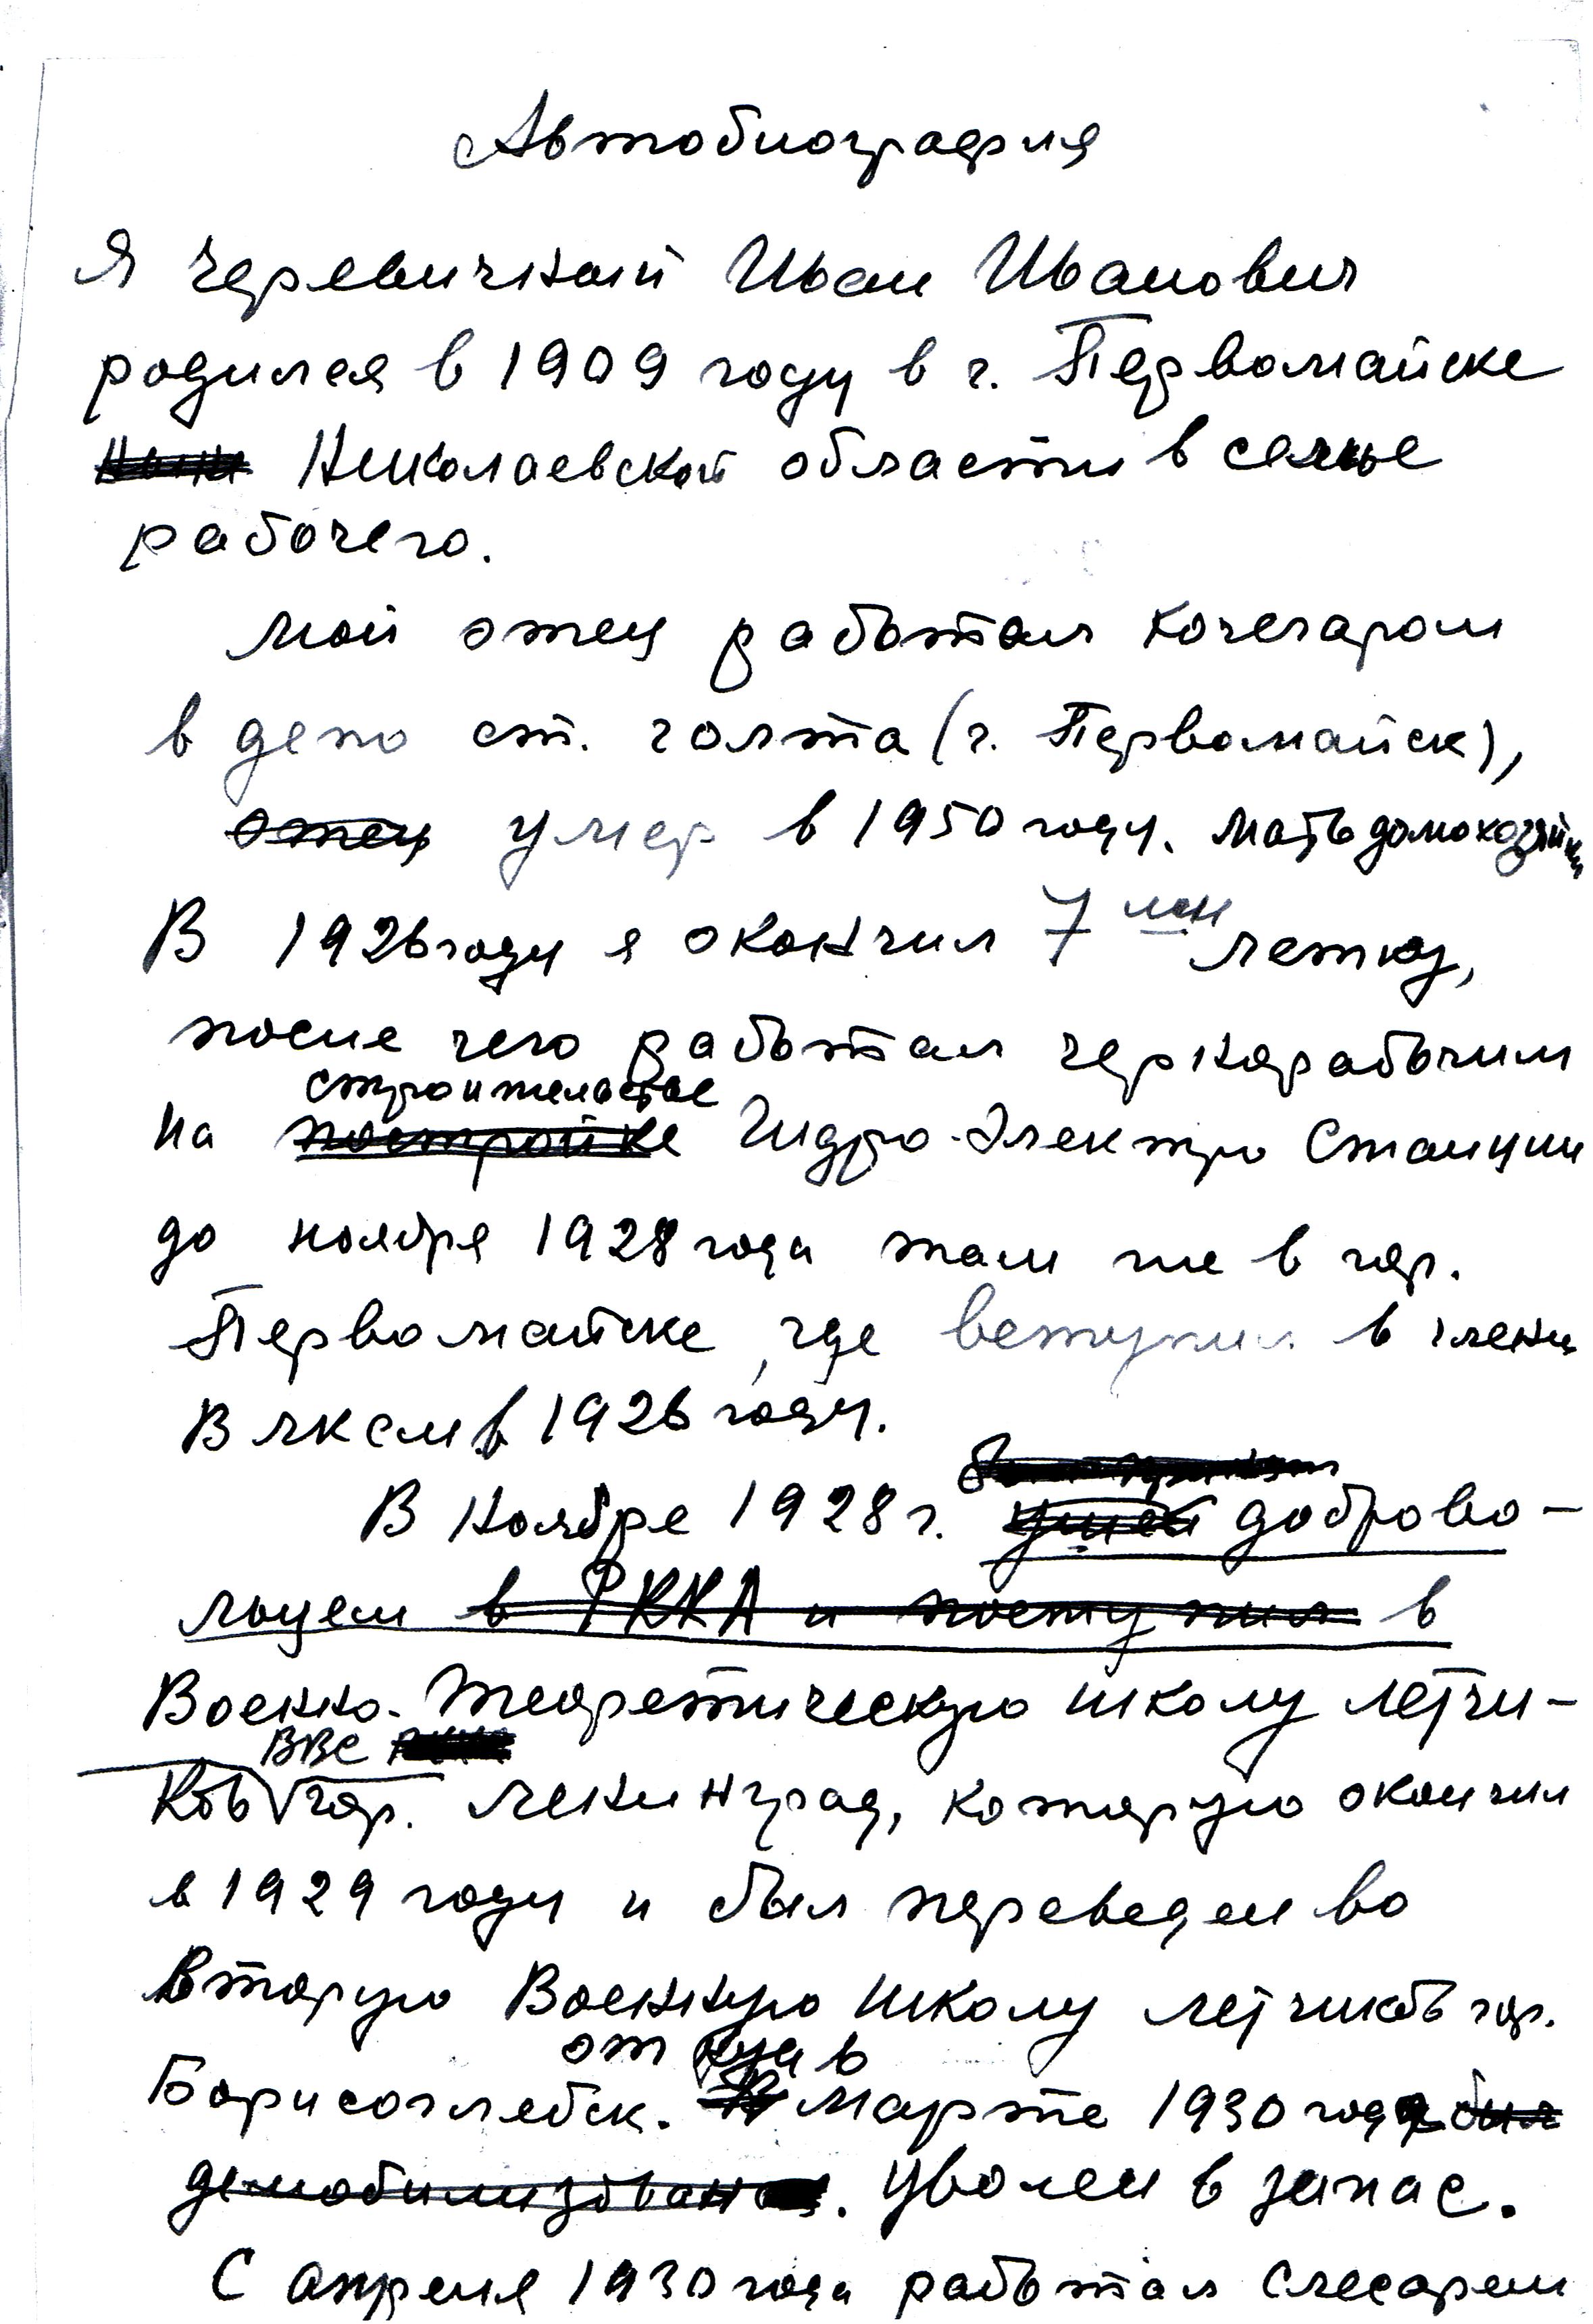 Автобиография
Я Черевичный Иван Иванович
родился в 1909 году в г. Первомайске
Николаевской области в семье
рабочего.
Мой отец работал кочегаром
в депо ст. Голта (г. Первомайск),
отец умер в 1950 году. Мать домохозяйка
В 1926 году я окончил 7 ми летку,
после чего работал чернорабочим
строительстве
на постройке Гидро-Электро Станции
до ноября 1928 года там же в гор.
Первомайске, где вступил в члены
ВЛКСМ в 1926 году.
был принят
В Ноябре 1928 г. ушел доброво-
льцем в РККА и поступил в
Военно-Теоретическую школу летчи-
ВВС
ков гор. Ленинград, которую окончил
в 1929 году и был переведен во
Вторую Военную школу летчиков гор.
откуда в
Борисоглебск. В Марте 1930 года был
демобилизован. уволен в запас.
С апреля 1930 года работал слесарем